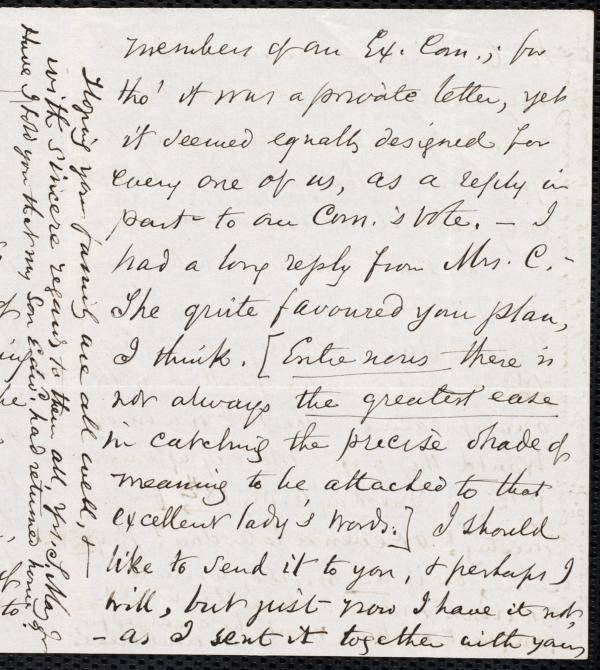 members of our Ex. Com.; for
tho' it was a private letter, yet
it seemed equally designed for
every one of us, as a reply in
part to our Com.'s vote. — I
had a long reply from Mrs. C. —
She quite favoured your plan,
I think. [Entre nous there is
not always the greatest ease
in catching the precise shade of
meaning to be attached to that
excellent lady's words.] I should
like to send it to you, & perhaps I
will, but just now I have it not,
— as I sent it together with yours
Hoping your family are all well, &
with sincere regards to them all, yrs. S. May Jr
Have I told you that my Son Edwd. had returned home?